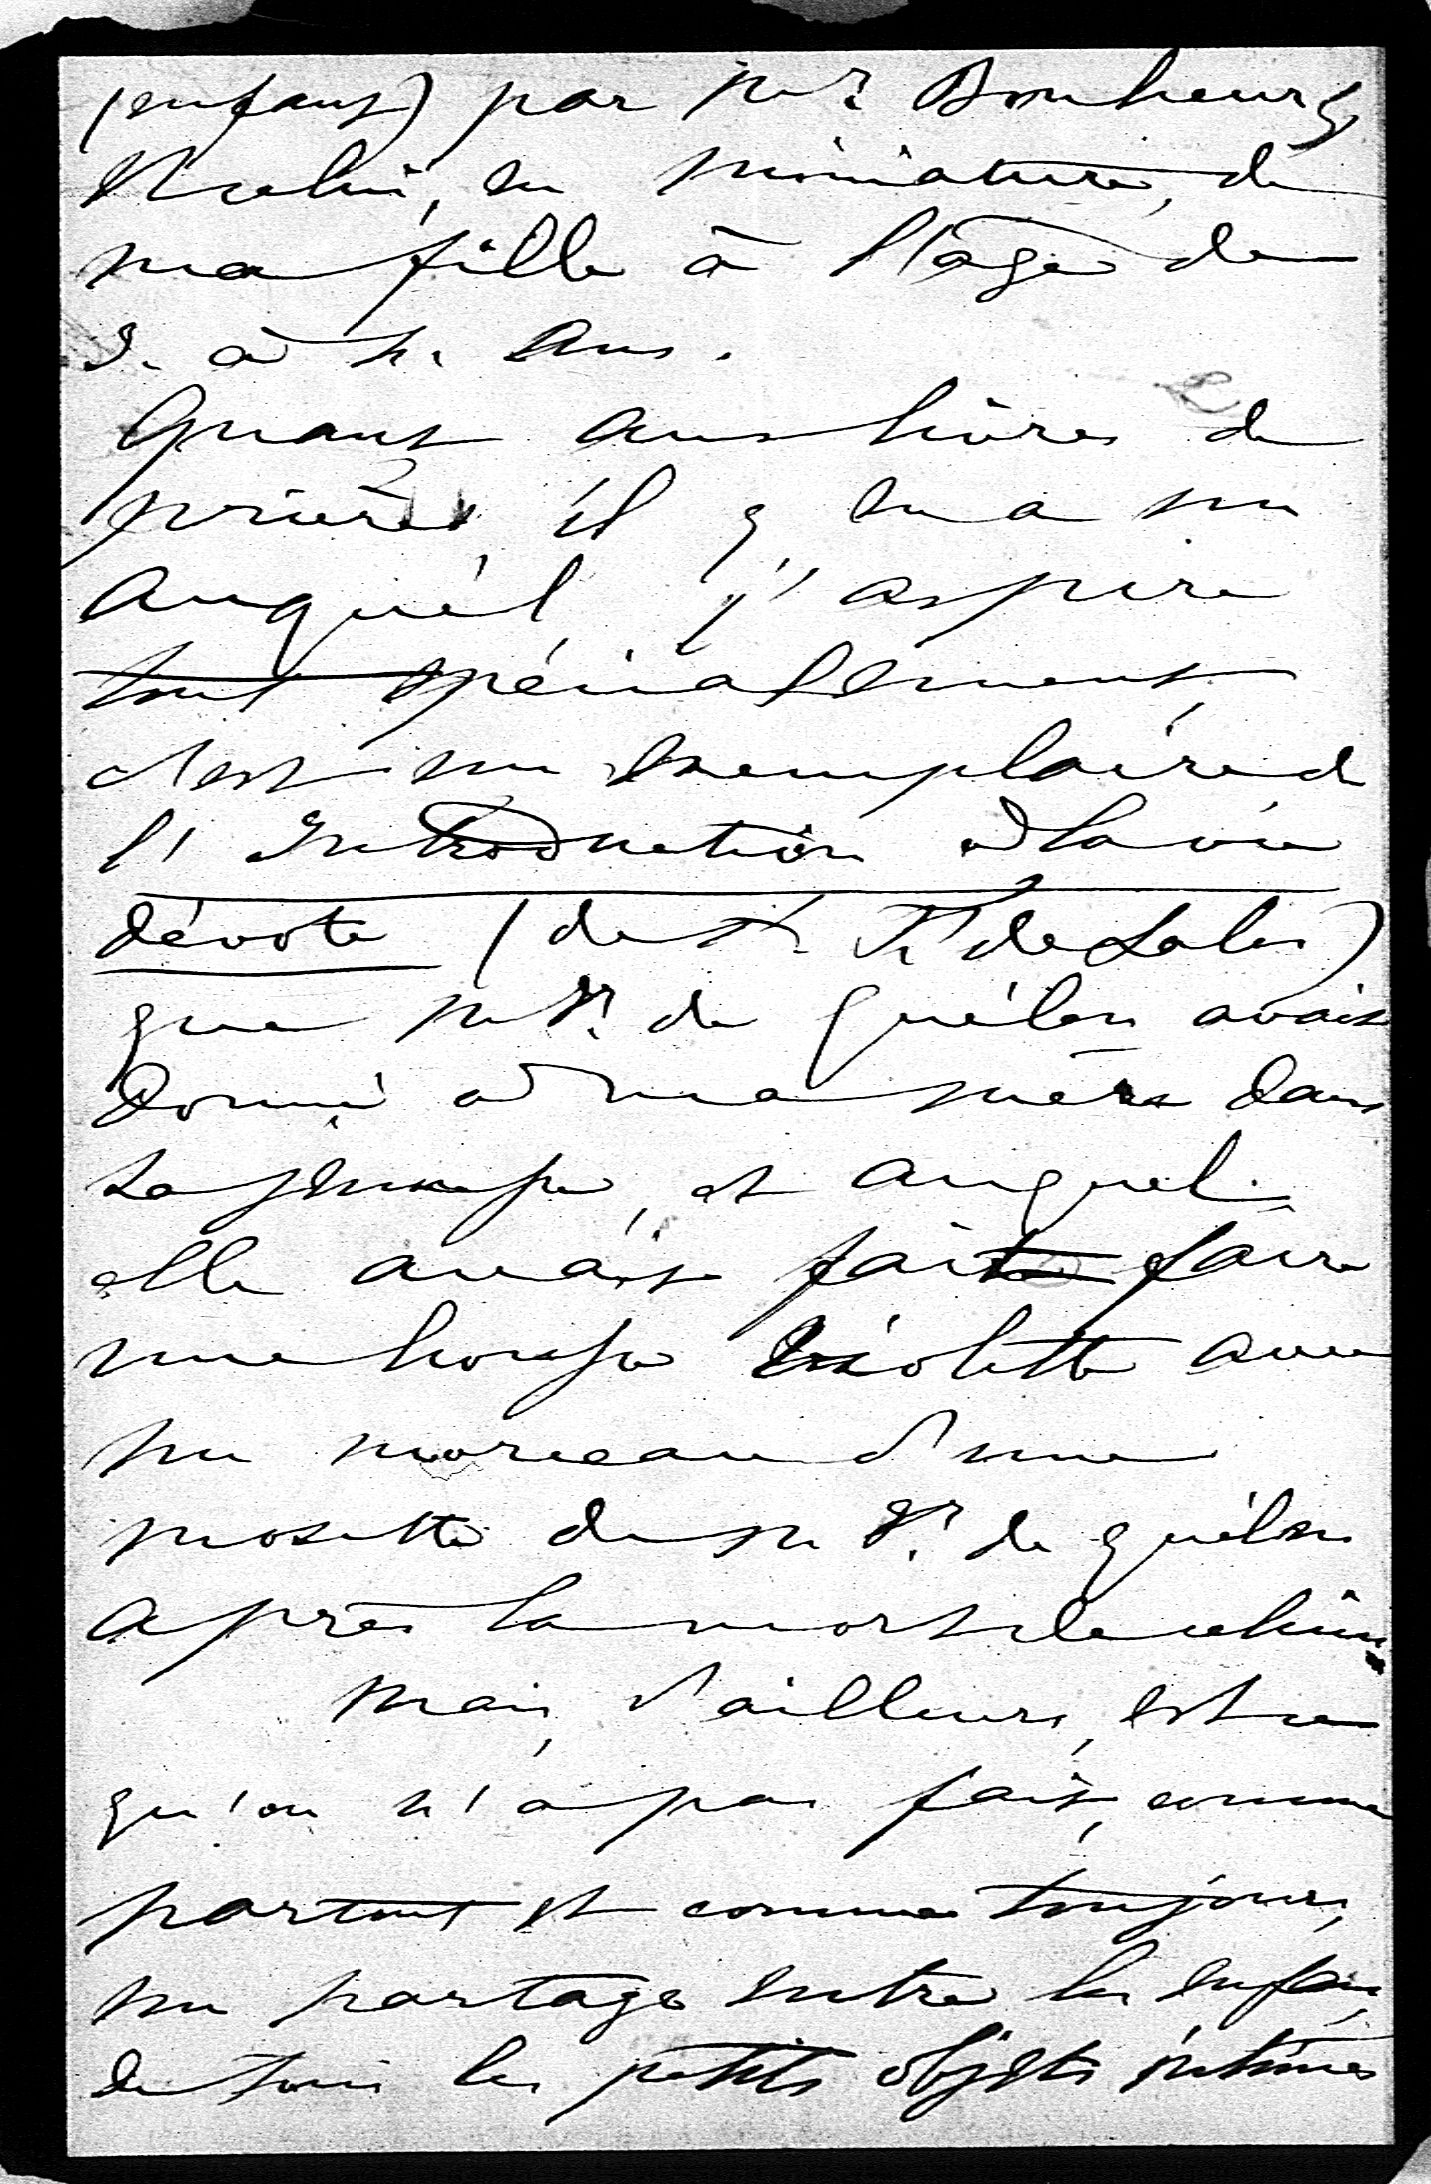 (enfant) par Mr Bonheur,
et celui, en miniature, de
ma fille à l'âge de
3. à 4. ans.
Quant aux livres de
prière, il y en a un
auquel j'aspire
tout spécialement,
c'est un exemplaire de
l'Introduction à la vie
dévote (de St Fs de Sales)
que Mgr de Quélen avait
donné à ma mère dans
sa jeunesse, et auquel
elle avait fait faire
une housse violette avec
un morceau d'une
mosette de Mgr de Quélen
après la mort de celui-ci.
Mais, d'ailleurs, est-ce
qu'on n'a pas fait, comme
partout et comme toujours,
un partage entre les enfans,
de tous les petits objets intimes